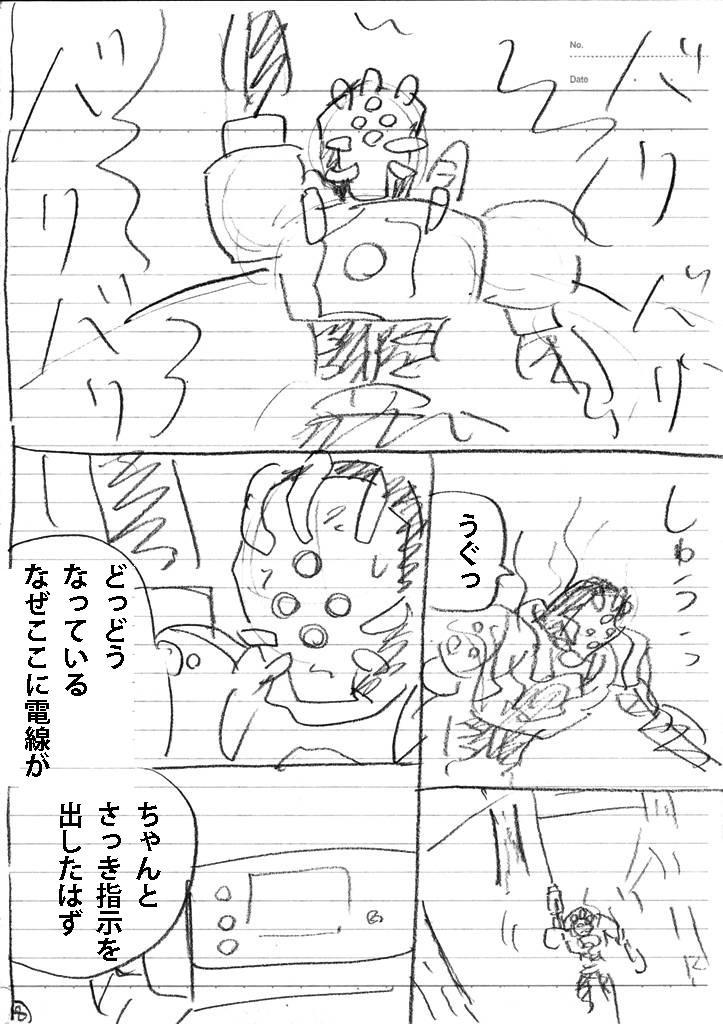 No.
Date
バリリ
バリ
バリリ
バリ
しゅうぅっ
うぐっ
どっどう
なっている
なぜここに電線が
ちゃんと
さっき指示を
出したはず
8